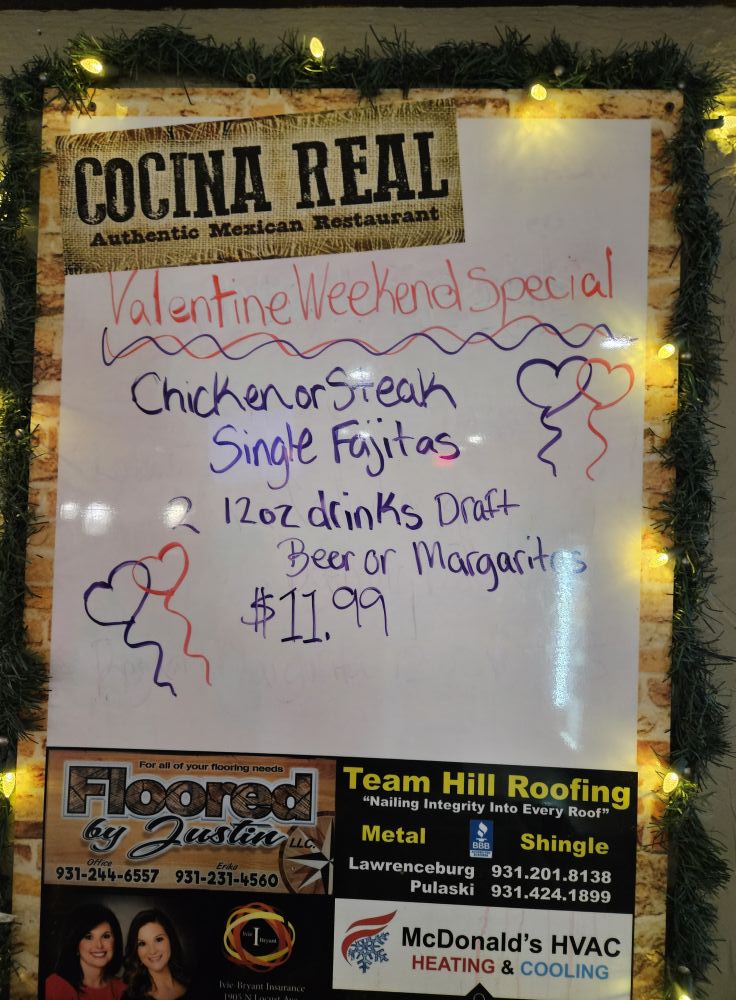 COCINA REAL
Authentic Mexican Restaurant
Valentine Weekend Special
Chicken or Steak
Single Fajitas
2 12oz drinks Draft
Beer or Margaritas
$11.99
For all of your flooring needs
Floored
by Justin LLC.
Office
931-244-6557
Erika
931-231-4560
Team Hill Roofing
"Nailing Integrity Into Every Roof"
Metal
BBB
Shingle
Lawrenceburg 931.201.8138
Pulaski 931.424.1899
Ivie
I
Bryant
Ivie-Bryant Insurance
1905 N Locust Ave
McDonald's HVAC
HEATING & COOLING